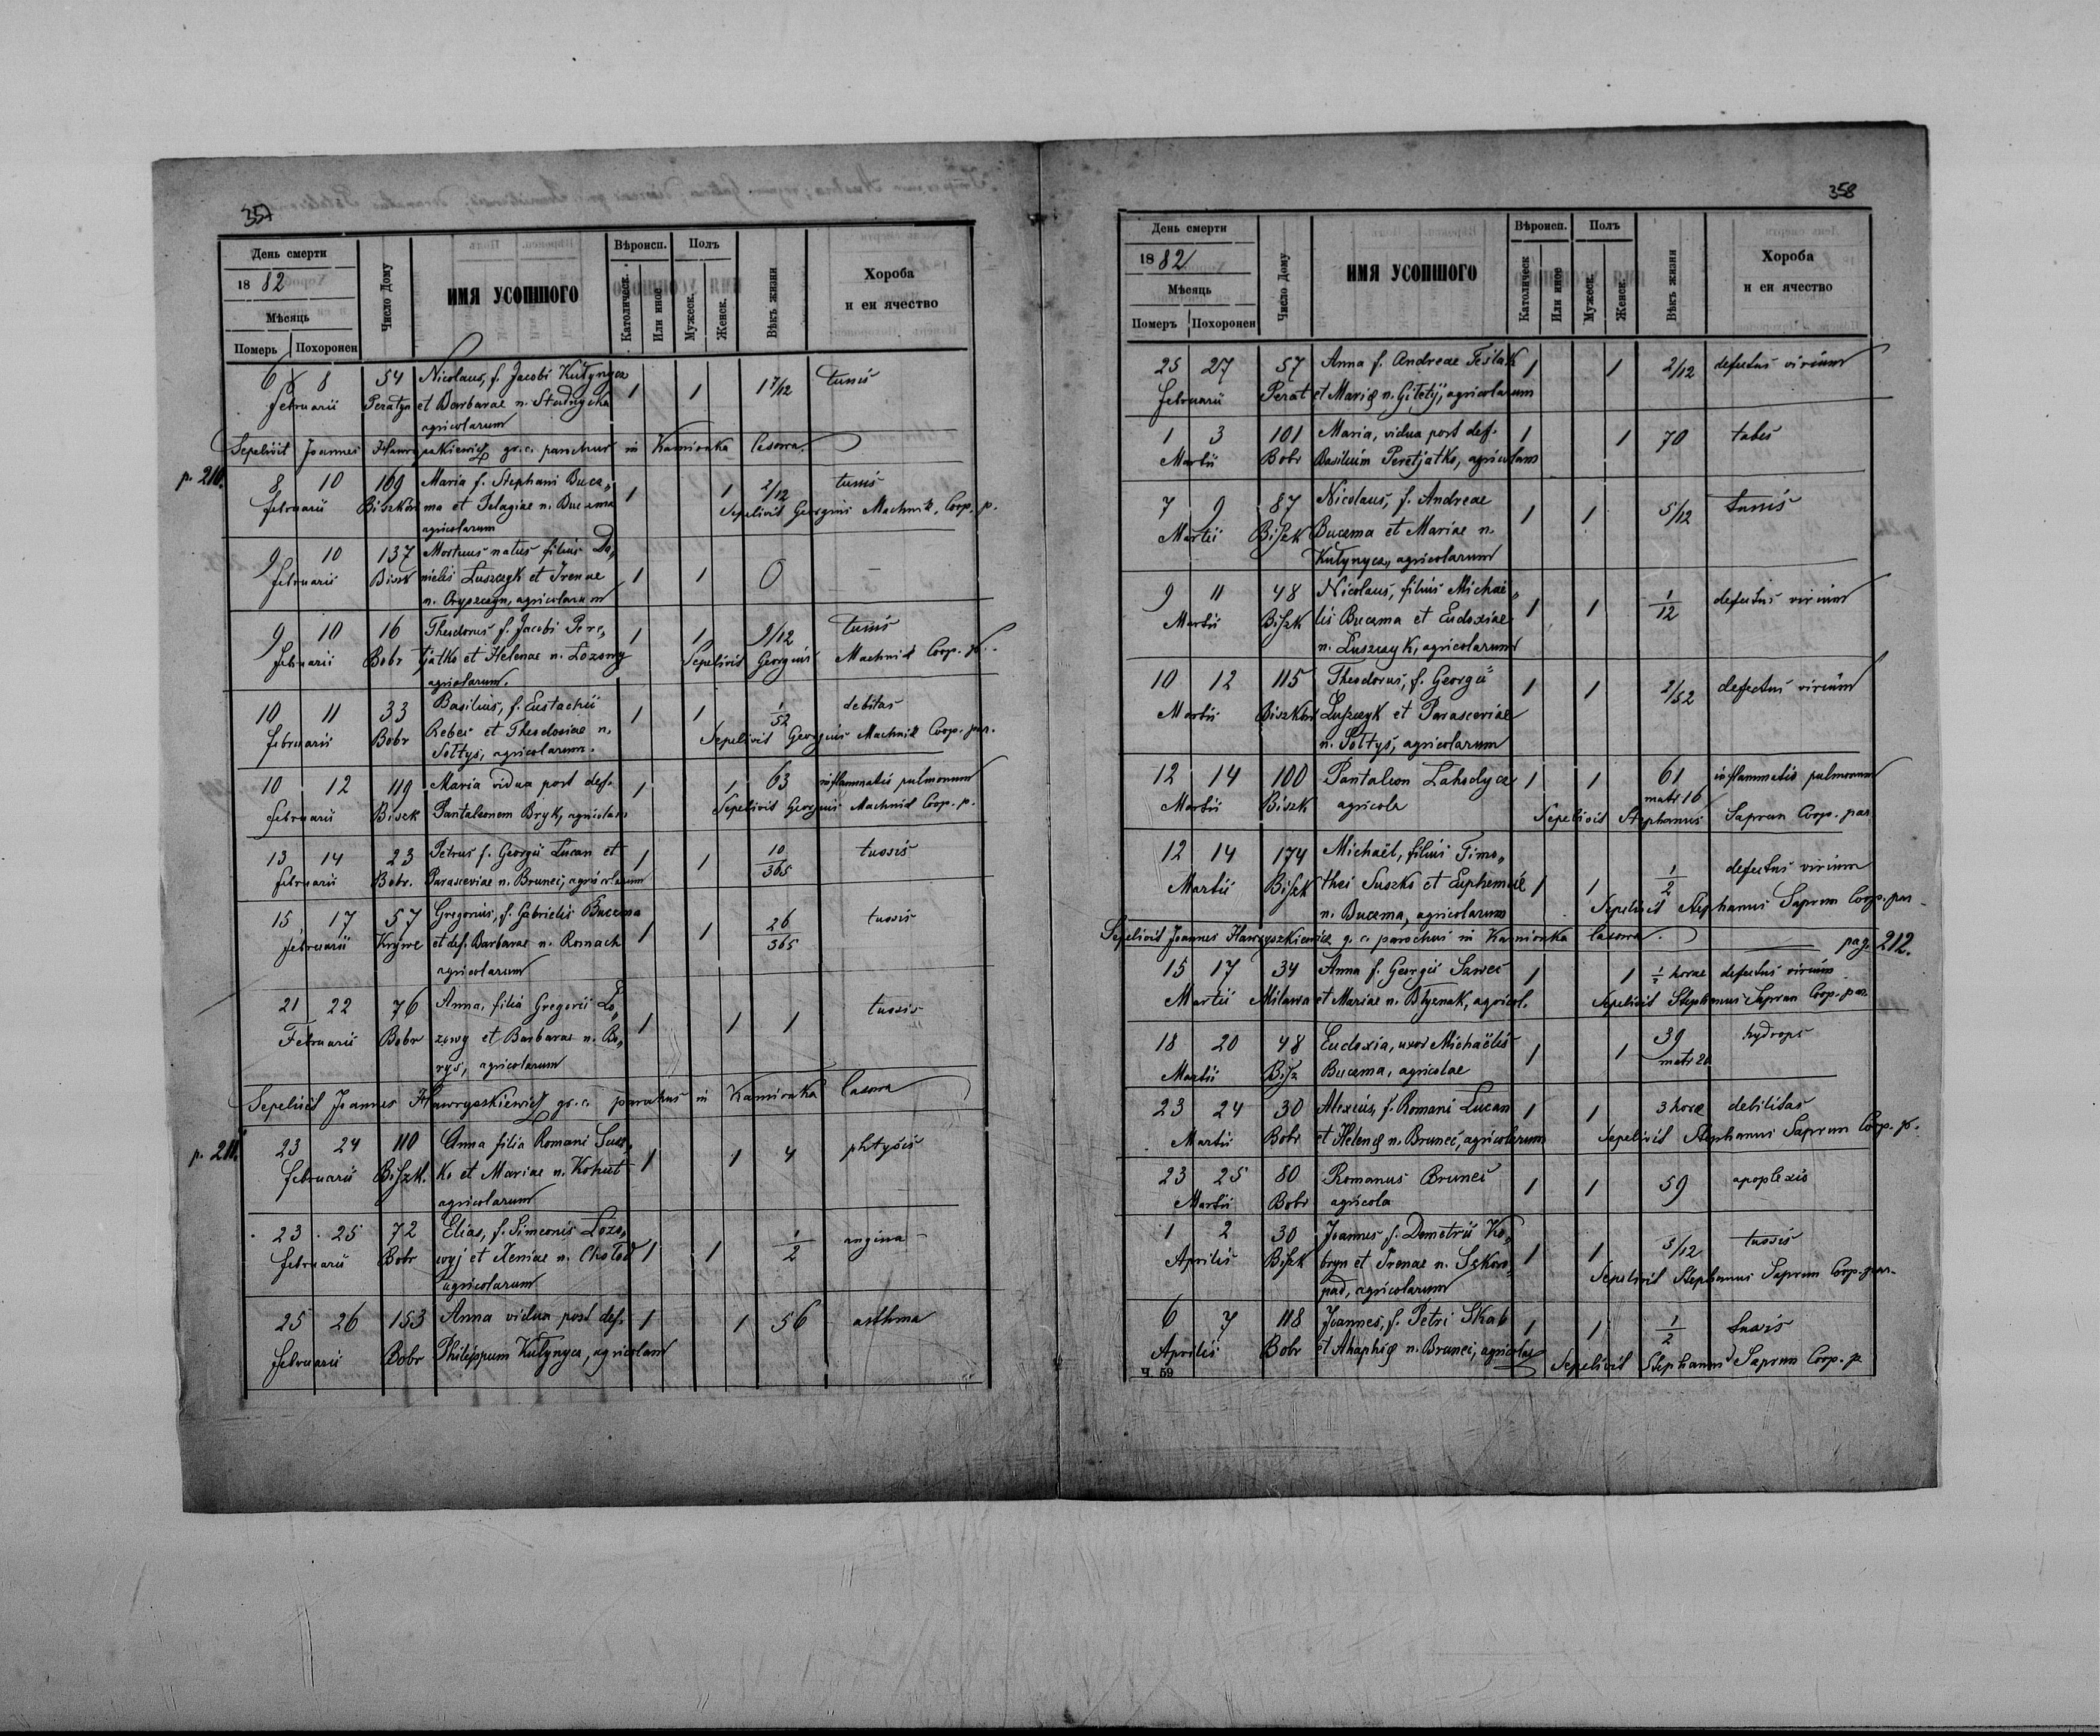 357
День смерти
1882
Мѣсяць
Померь Похоронен
Число Дому
ИМЯ УСОПШОГО
Вѣроисп.
Католическ.
Или иное
Полъ
Мужеск.
Женск.
Вѣкъ жизни
Хороба
и еи ячество
6 8 54 Nicolaus, f. Jacobi Kułynycz 1 1 17/12 tussis
Februarii Peratyn et Barbarae n. Studnycka
agricolarum
Sepelivit Joannes Hawryszkiewicz gr. c. parochus in Kamionka Lasowa
p. 210.
8 10 169 Maria f. Stephani Buce„ 1 1 2/12 tussis
Februarii Biszków ma et Pelagiae n. Bucema Sepelivit Georgius Machnik Coop. p.
agricolarum
9 10 137 Mortuus natus filius Da„
Februarii Biszk nielis Luszczyk et Irenae 1 1 0 —
n. Oryszczyn, agricolarum
9 10 16 Theodorus f. Jacobi Pere„ 1 1 9/12 tussis
Februarii Bobr tjatko et Helenae n. Lozowy Sepelivit Georgius Machnik Coop. p.
agricolarum.
10 11 33 Basilius, f. Eustachii 1 1 1/52 debilitas
Februarii Bobr Rebec et Theodosiae n. Sepelivit Georgius Machnik Coop. par.
Sołtys, agricolarum.
10 12 119 Maria vidua post def. 1 1 63 inflammatis pulmonum
Februarii Biszk Pantaleonem Bryk, agricolam Sepelivit Georgius Machnik Coop. p.
13 14 23 Petrus f. Georgii Lucan et 1 1 10/365 tussis
Februarii Bobr. Parasceviae n. Brunec, agricolarum
15 17 57 Gregorius, f. Gabrielis Bucema 1 1 26/365 tussis
Februarii Krywe et def. Barbarae n. Romach
agricolarum
21 22 76 Anna, filia Gregorii Lo„ tussis
Februarii Bobr zowy et Barbarae n. Bo„ 1 1 1
rys, agricolarum
Sepelivit Joannes Hawryszkiewicz gr. c. parochus in Kamionka Lasowa
p. 211.
23 24 110 Anna filia Romani Susz„ phtysis
Februarii Biszk. ko et Mariae n. Kohut 1 1 4
agricolarum
23 25 72 Elias, f. Simeonis Lozo„ angina
Februarii Bobr wyj et Xeniae n. Chołod 1 1 1/2
agricolarum
25 26 153 Anna vidua post def. 1 1 56 asthma
Februarii Bobr Philippum Kułynycz, agricolam
358
День смерти
1882
Мѣсяць
Померъ Похоронен
Число Дому
ИМЯ УСОПШОГО
Вѣроисп.
Католическ
Или иное
Полъ
Мужеск.
Женск.
Вѣкъ жизни
Хороба
и еи ячество
25 27 57 Anna f. Andreae Teślak 1 1 2/12 defectus virium
Februarii Perat et Marię n. Giletij, agricolarum
1 3 101 Maria, vidua post def. 1 1 70 tabes
Martii Bobr Basilium Peretjatko, agricolam
7 9 87 Nicolaus, f. Andreae 1 1 5/12 tussis
Martii Biszk Bucema et Mariae n.
Kułynycz, agricolarum
9 11 48 Nicolaus, filius Michae„ 1 1 1/12 defectus virium
Martii Biszk lis Bucema et Eudoxiae
n. Luszczyk, agricolarum
10 12 115 Theodorus, f. Georgii 1 1 2/52 defectus virium
Martii Biszków Luszczyk et Parasceviae
n. Sołtys, agricolarum
12 14 100 Pantaleon Lahodycz 1 1 61 inflammatis pulmonum
Martii Biszk agricola matr 16
Sepelivit Stephanus Saprun Coop. par
12 14 174 Michaël, filius Timo„ defectus virium
Martii Biszk thei Suszko et Euphemiæ 1 1 1/2
n. Bucema, agricolarum Sepelivit Stephanus Saprun Coop. par
Sepelivit Joannes Hawryszkiewicz g. c. parochus in Kamionka Lasowa.
pag. 212.
15 17 34 Anna f. Georgii Szwec 1 1 1/2 horae defectus virium
Martii Milawa et Mariae n. Błyznak, agricol. Sepelivit Stephanus Saprun Coop. par.
18 20 48 Eudoxia, uxor Michaëlis 1 1 39 hydrops
Martii Bisz Bucema, agricolae matr 20
23 24 30 Alexius, f. Romani Lucan 1 1 3 horæ debilitas
Martii Bobr et Helenę n. Brunec, agricolarum Sepelivit Stephanus Saprun Coop. p.
23 25 80 Romanus Brunec 1 1 59 apoplexis
Martii Bobr agricola
1 2 30 Joannes f. Demetrii Ko„ 1 1 3/12 tussis
Aprilis Biszk bryn et Irenae n. Szkoro„ Sepelivit Stephanus Saprun Coop. par.
pad, agricolarum
6 7 118 Joannes, f. Petri Skab 1 1 1/2 tussis
Aprilis Bobr et Ahaphię n. Brunec, agricolae Sepelivit Stephanus Saprun Coop. p
Ч. 59